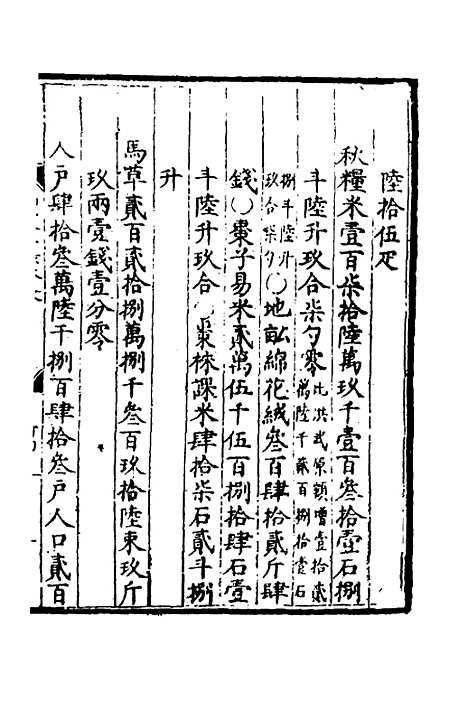 陸拾伍疋
秋糧米壹百柒拾陸萬玖千壹百叁拾壹石捌
斗陸升玖合柒勺零比洪武原額增壹拾貳萬陸千貳百捌拾壹石
捌斗陸升玖合柒勺○地畝綿花絨叁百肆拾貳斤肆
錢○棗子易米貳萬伍千伍百捌拾肆石壹
斗陸升玖合○棗株課米肆拾柒石貳斗捌
升
馬草貳百貳拾捌萬捌千叁百玖拾陸束玖斤
玖兩壹錢壹分零
人戶肆拾叁萬陸千捌百肆拾叁戶人口貳百